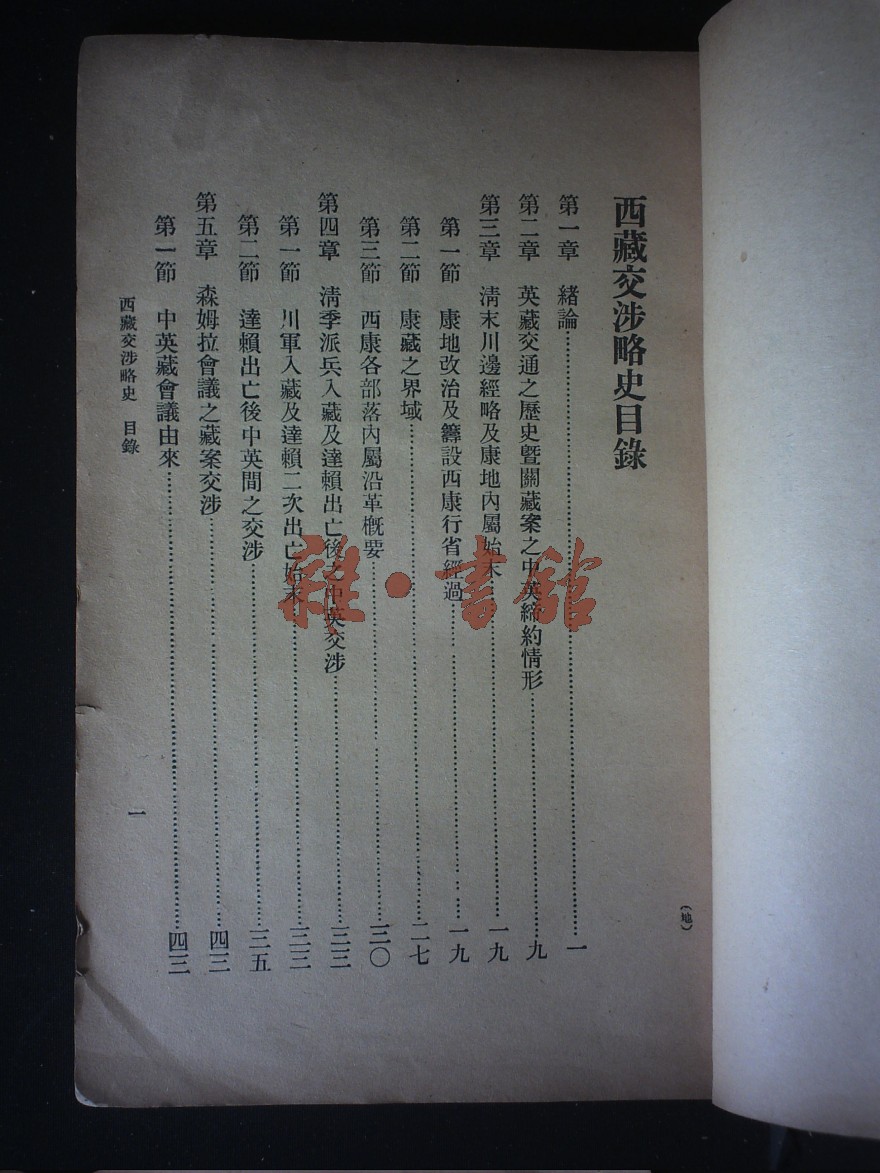 西藏交涉略史目錄
第一章　緒論……一
第二章　英藏交通之歷史暨關藏案之中英締約情形……九
第三章　清末川邊經略及康地內屬始末……一九
第一節　康地改治及籌設西康行省經過……一九
第二節　康藏之界域……二七
第三節　西康各部落內屬沿革概要……三〇
第四章　清季派兵入藏及達賴出亡後之中英交涉……三三
第一節　川軍入藏及達賴二次出亡始末……三三
第二節　達賴出亡後中英間之交涉……三五
第五章　森姆拉會議之藏案交涉……四三
第一節　中英藏會議由來……四三
西藏交涉略史　目錄
一
(地)
雜·書館